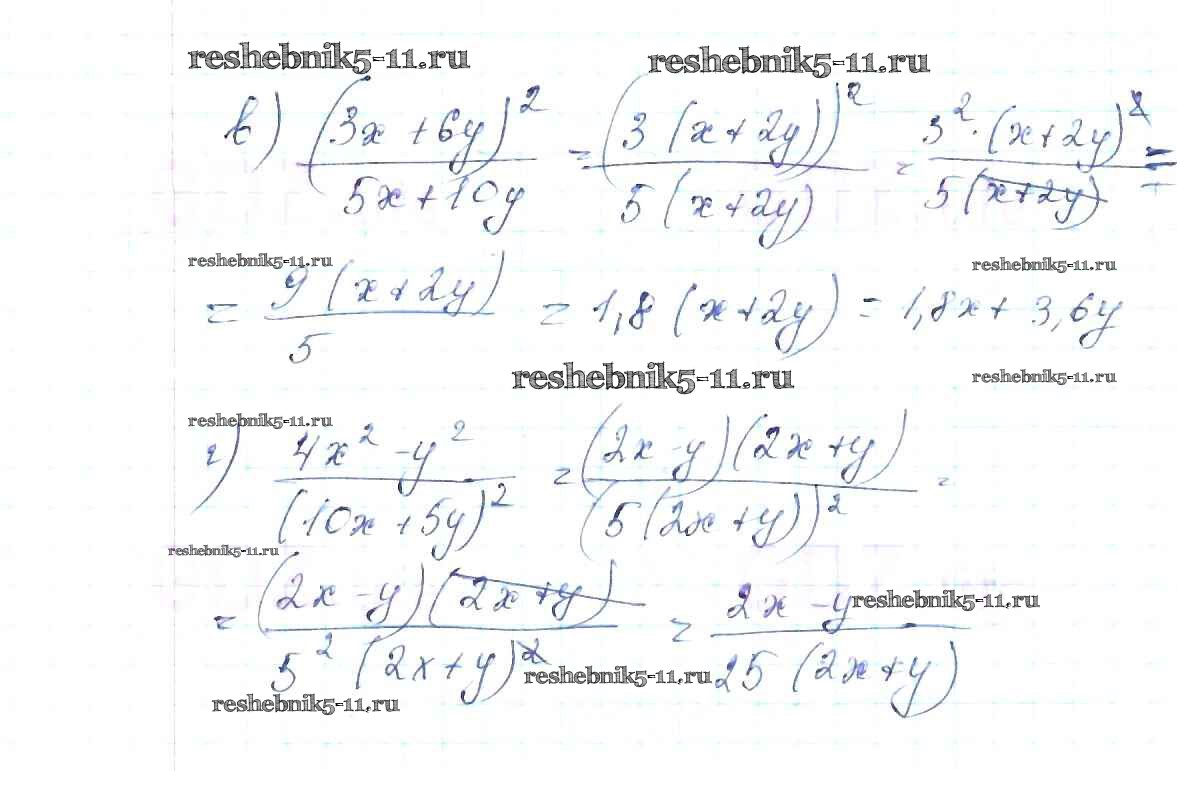 reshebnik5-11.ru reshebnik5-11.ru
в) (3x + 6y)² / (5x + 10y) = (3(x + 2y))² / (5(x + 2y)) = 3² · (x + 2y)² / (5(x + 2y)) =
reshebnik5-11.ru reshebnik5-11.ru
= 9(x + 2y) / 5 = 1,8(x + 2y) = 1,8x + 3,6y
reshebnik5-11.ru reshebnik5-11.ru
reshebnik5-11.ru
г) (4x² - y²) / (10x + 5y)² = (2x - y)(2x + y) / (5(2x + y))² =
reshebnik5-11.ru
= (2x - y)(2x + y) / (5²(2x + y)²) = (2x - y) / (25(2x + y))
reshebnik5-11.ru
reshebnik5-11.ru
reshebnik5-11.ru